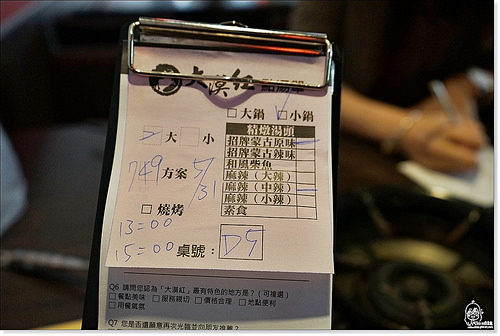 大漠紅 點湯單
□大鍋 □小鍋
精燉湯頭
招牌蒙古原味
招牌蒙古辣味
和風柴魚
麻辣（大辣）
麻辣（中辣）
麻辣（小辣）
素食
大 小
749 方案 5/31
□ 燒烤
13=00
15=00 桌號： D9
Q6 請問您認為「大漠紅」最有特色的地方是？（可複選）
□餐點美味 □服務親切 □價格合理 □地點便利
□用餐氣氛
Q7 您是否還願意再次光臨並向朋友推薦？